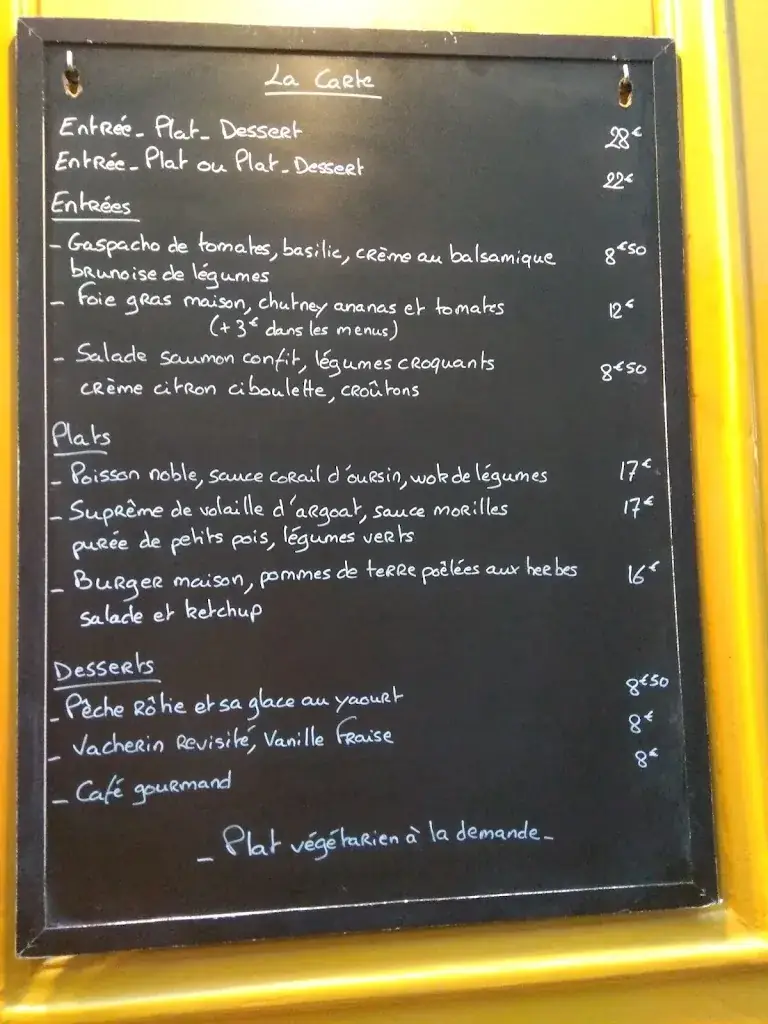 La Carte
Entrée - Plat - Dessert 28€
Entrée - Plat ou Plat - Dessert 22€
Entrées
- Gaspacho de tomates, basilic, crème au balsamique 8€50
brunoise de légumes
- Foie gras maison, chutney ananas et tomates 12€
(+3€ dans les menus)
- Salade saumon confit, légumes croquants 8€50
crème citron ciboulette, croûtons
Plats
- Poisson noble, sauce corail d'oursin, wok de légumes 17€
- Suprême de volaille d'argoat, sauce morilles 17€
purée de petits pois, légumes verts
- Burger maison, pommes de terre poêlées aux herbes 16€
salade et ketchup
Desserts
- Pêche rôtie et sa glace au yaourt 8€50
- Vacherin revisité, Vanille Fraise 8€
- Café gourmand 8€
- Plat végétarien à la demande -